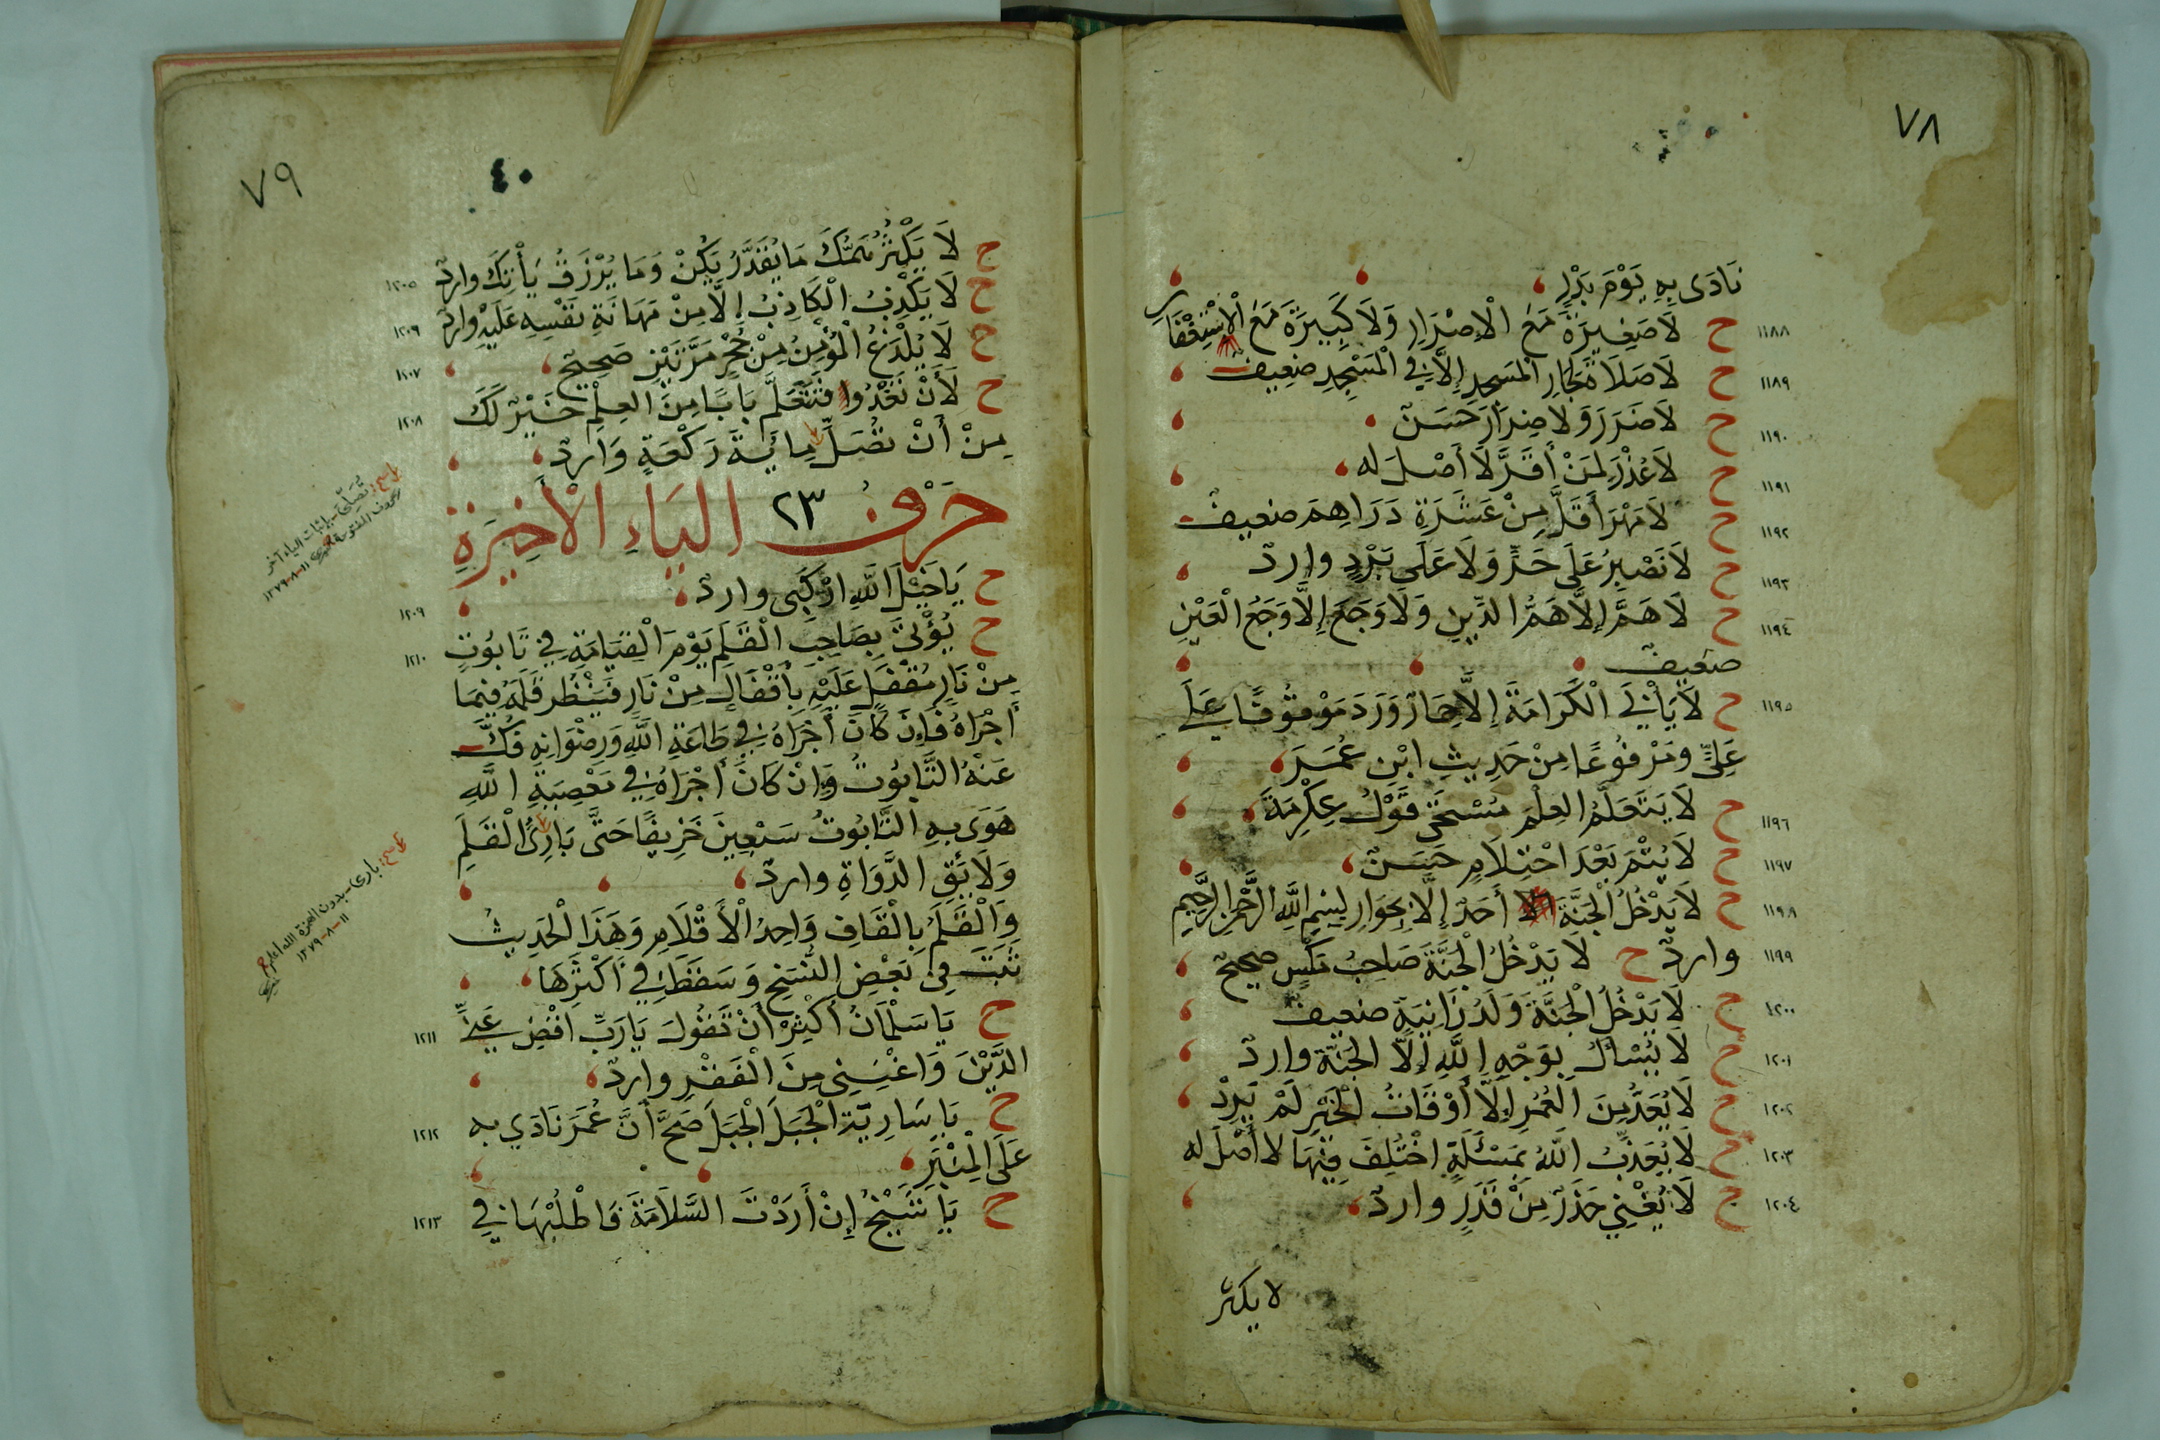 ٧٨
نَادَى بِهِ يَوْمَ بَدْرٍ
١١٨٨ ح لَا صَغِيرَةَ مَعَ الْإِصْرَارِ وَلَا كَبِيرَةَ مَعَ الْاِسْتِغْفَارِ
١١٨٩ ح لَا صَلَاةَ لِجَارِ الْمَسْجِدِ إِلَّا فِي الْمَسْجِدِ ضعِيفٌ
١١٩٠ ح لَا ضَرَرَ وَلَا ضِرَارَ حَسَنٌ
١١٩١ ح لَا عُذْرَ لِمَنْ أَقَرَّ لَا أَصْلَ له
١١٩٢ ح لَا مَهْرَ أَقَلَّ مِنْ عَشَرَةِ دَرَاهِمَ ضعيفٌ
١١٩٣ ح لَا نَصْبِرُ عَلَى حَرٍّ وَلَا عَلَى بَرْدٍ واردٌ
١١٩٤ ح لَا هَمَّ إِلَّا هَمُّ الدِّينِ وَلَا وَجَعَ إِلَّا وَجَعُ الْعَيْنِ
ضعيفٌ
١١٩٥ ح لَا يَأْبَى الْكَرَامَةَ إِلَّا حِمَارٌ وَرَدَ مَوْقُوفًا عَلَى
عَلِيٍّ وَمَرْفُوعًا مِنْ حَدِيثِ ابْنِ عُمَرَ
١١٩٦ ح لَا يَتَعَلَّمُ العِلْمَ مُسْتَحْيٍ قَوْلُ عِكْرِمَةَ
١١٩٧ ح لَا يُتْمَ بَعْدَ احْتِلَامٍ حَسَنٌ
١١٩٨ ح لَا يَدْخُلُ الْجَنَّةَ أَحَدٌ إِلَّا بِجَوَازِ بِسْمِ اللَّهِ الرَّحْمنِ الرَّحِيمِ
١١٩٩ واردٌ ح لَا يَدْخُلُ الْجَنَّةَ صَاحِبُ مَكْسٍ صحيحٌ
١٢٠٠ ح لَا يَدْخُلُ الْجَنَّةَ وَلَدُ زَانِيَةٍ ضعيفٌ
١٢٠١ ح لَا يُسْأَلُ بِوَجْهِ اللَّهِ إِلَّا الجَنَّة واردٌ
١٢٠٢ ح لَا يُعَدُّ مِنَ الْعُمُرِ إِلَّا أَوْقَاتُ الْخَيْرِ لَمْ يَرِدْ
١٢٠٣ ح لَا يُعَذِّبُ اللَّهُ بِمَسْئَلَةٍ اخْتُلِفَ فِيهَا لا أَصْلَ له
١٢٠٤ ح لَا يُغْنِي حَذَرٌ مِنْ قَدَرٍ واردٌ
لا يكثر
٧٩
٤٠
١٢٠٥ ح لَا يَكْثُرُ هَمُّكَ مَا يُقَدَّرُ يَكُنْ وَمَا يُرْزَقُ يَأْتِكَ واردٌ
١٢٠٦ ح لَا يَكْذِبُ الْكَاذِبُ إِلَّا مِنْ مَهَانَةِ نَفْسِهِ عَلَيْهِ واردٌ
١٢٠٧ ح لَا يُلْدَغُ الْمُؤْمِنُ مِنْ جُحْرٍ مَرَّتَيْنِ صَحِيحٌ
١٢٠٨ ح لَأَنْ تَغْدُوا فَتَتَعَلَّمَ بَابًا مِنَ العِلْمِ خَيْرٌ لَكَ
مِنْ أَنْ تُصَلِّ مِائَةَ رَكْعَةٍ وَارِدٌ
حَرْفُ ٢٣ اليَاءِ الْأَخِيرَةِ
١٢٠٩ ح يَا خَيْلَ اللَّهِ ارْكَبِى واردٌ
١٢١٠ ح يُؤْتَى بِصَاحِبِ الْقَلَمِ يَوْمَ الْقِيَامَةِ فِي تَابُوتٍ
مِنْ نَارٍ مُقْفَلٍ عَلَيْهِ بِأَقْفَالٍ مِنْ نَارٍ فَيَنْظُرُ قَلَمَهُ فِيمَا
أَجْرَاهُ فَإِنْ كَانَ أَجْرَاهُ فِي طَاعَةِ اللَّهِ وَرِضْوَانِهِ فُكَّ
عَنْهُ التَّابُوتُ وَإِنْ كَانَ أَجْرَاهُ فِي مَعْصِيَةِ اللَّهِ
هَوَى بِهِ التَّابُوتُ سَبْعِينَ خَرِيفًا حَتَّى بَارِئُ الْقَلَمِ
وَلَائِقِ الدَّوَاةِ واردٌ
وَالْقَلَمُ بِالْقَافِ وَاحِدُ الْأَقْلَامِ وَهَذَا الْحَدِيثُ
ثَبَتَ فِى بَعْضِ النُّسَخِ وَسَقَطَ فِي أَكْثَرِهَا
١٢١١ ح يَا سَلْمَانُ أَكْثِرْ أَنْ تَقُولَ يَا رَبِّ اقْضِ عَنِّي
الدَّيْنَ وَاغْنِنِى مِنَ الْفَقْرِ واردٌ
١٢١٢ ح يَا سَارِيَةَ الْجَبَلَ الْجَبَلَ صَحَّ أَنَّ عُمَرَ نَادَى به
عَلَى الْمِنْبَرِ
١٢١٣ ح يَا شَيْخُ إِنْ أَرَدْتَ السَّلَامَةَ فَاطْلُبْهَا فِي
تُصَلِّىَ بإثبات الياء آخر
١١-٨-١٢٧٩
بارى بدون الهمزة الله أعلم
١١-٨-١٢٧٩